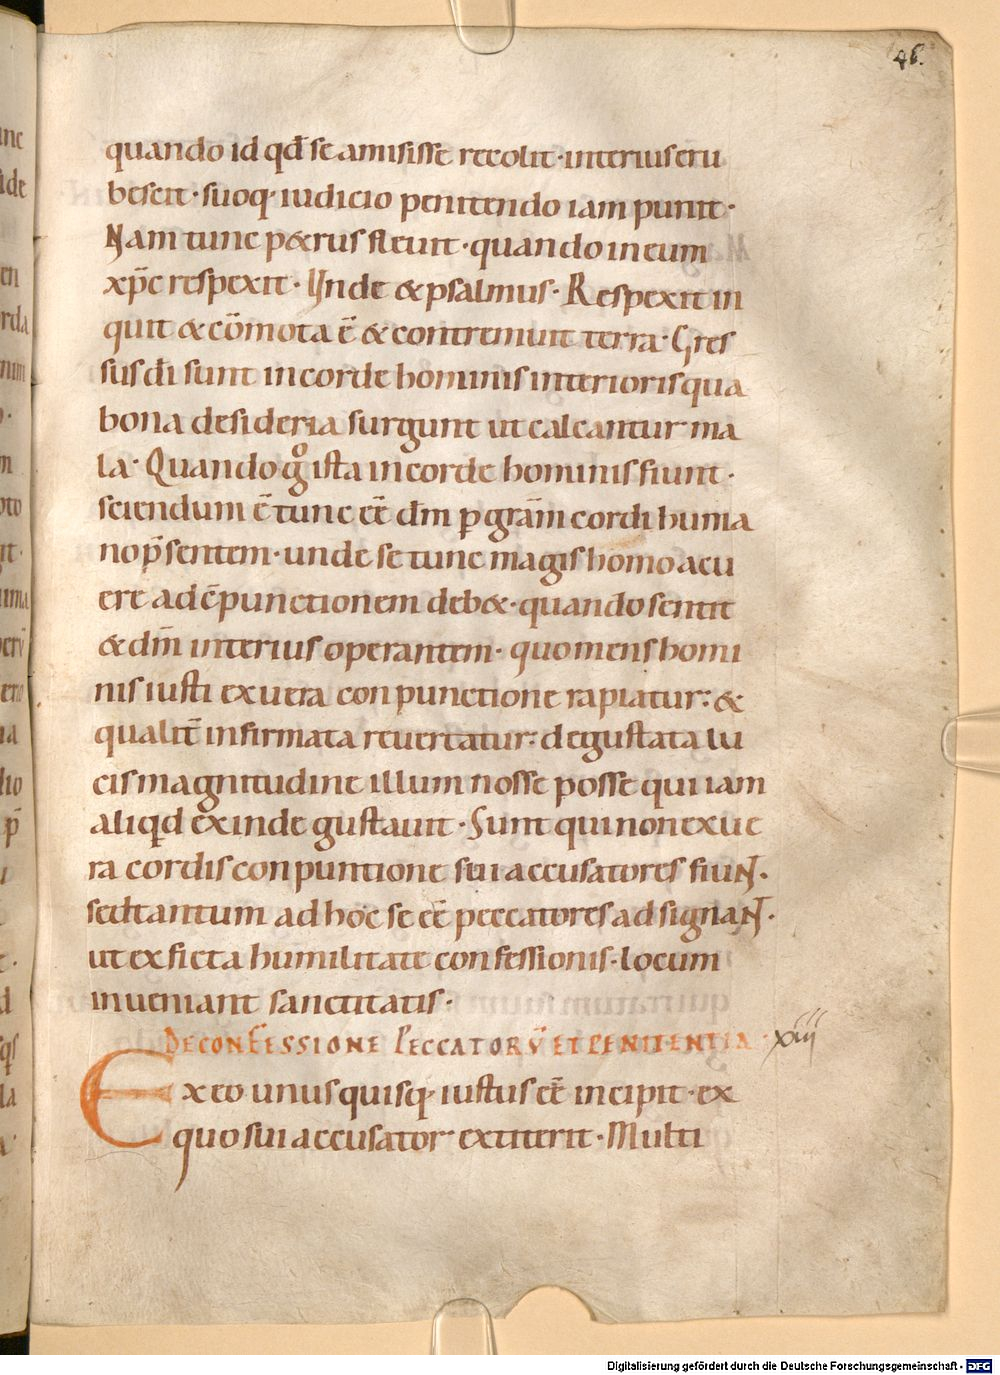 46.
quando id qđ se amisisse recolit · interius eru
bescit · suoq· iudicio penitendo iam punit ·
Nam tunc p&rus fleuit · quando in eum
xp̄c respexit · Unde & psalmus · Respexit in
quit & cōmota ē & contremuit terra · Gres
sus dī sunt in corde hominis interioris qua
bona desideria surgunt ut calcantur ma
la · Quando gͦ ista in corde hominis fiunt ·
sciendum ē tunc eē dm̄ p grām cordi huma
no p̄sentem · unde se tunc magis homo acu
ere ad cp̄unctionem deb& · quando sentit
& dm̄ interius operantem · quo mens homi
nis iusti ex uera conpunctione rapiatur : &
qualit̄ infirmata reuertatur : degustata lu
cis magnitudine illum nosse posse qui iam
aliqd exinde gustauit · Sunt qui non ex ue
ra cordis conpuntione sui accusatores fiuNT ·
sed tantum ad hoc se eē peccatores ad signaNT ·
ut ex ficta humilitate confessionis · locum
inueniant sanctitatis ·
DE CONFESSIONE PECCATORṼ ET PENITENTIA · xiiii
Ex eo unus quisq· iustus eē incipit · ex
quo sui accusator extiterit · Multi
Digitalisierung gefördert durch die Deutsche Forschungsgemeinschaft - DFG